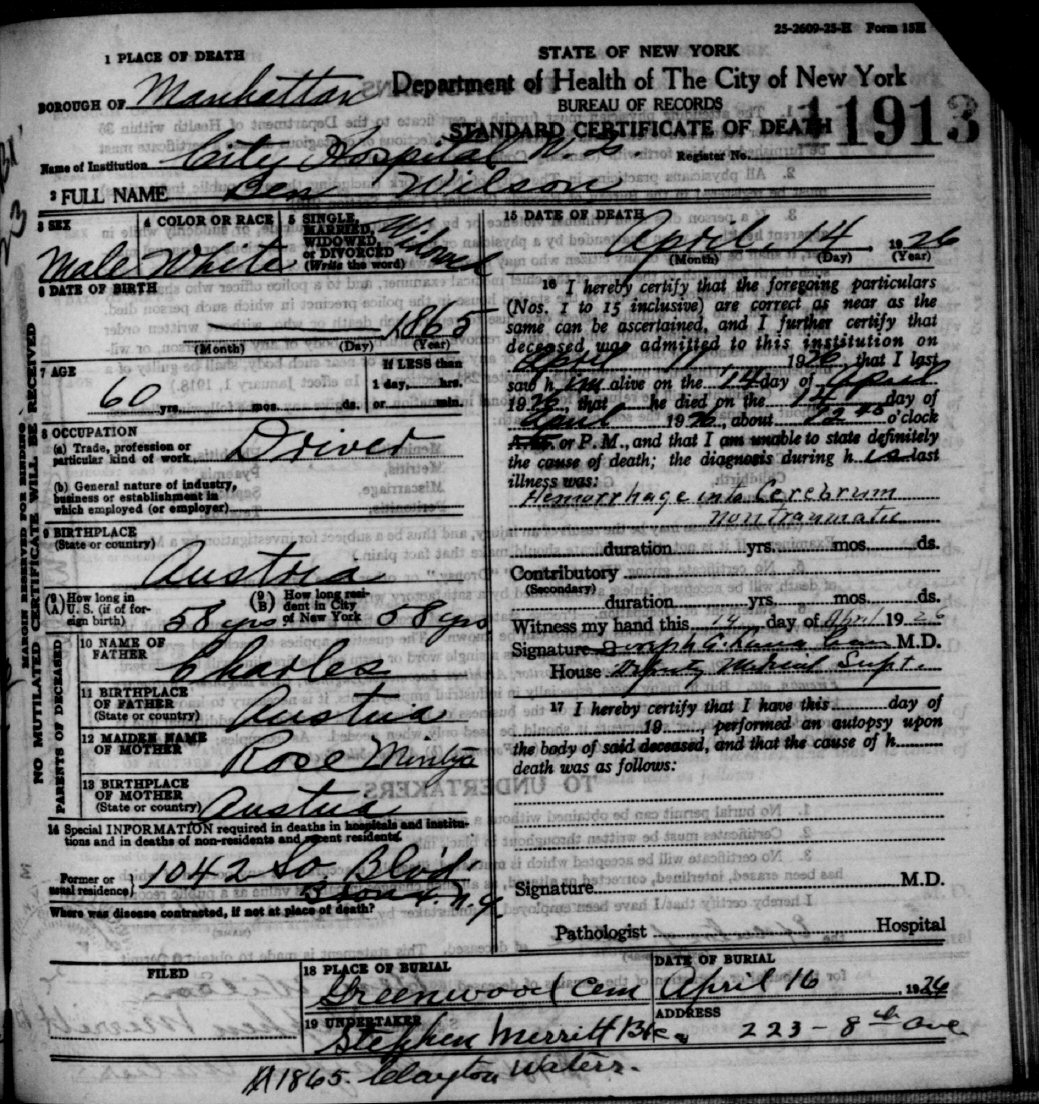 25-2609-25-H Form 15H
STATE OF NEW YORK
Department of Health of The City of New York
BUREAU OF RECORDS
STANDARD CERTIFICATE OF DEATH
11913
Register No.
1 PLACE OF DEATH
BOROUGH OF Manhattan
Name of Institution City Hospital
2 FULL NAME Ben Wilson
3 SEX
Male
4 COLOR OR RACE
White
5 SINGLE,
MARRIED,
WIDOWED,
or DIVORCED
(Write the word)
Widowed
6 DATE OF BIRTH
1865
(Month) (Day) (Year)
7 AGE
60 yrs. mos. ds.
If LESS than
1 day, hrs.
or min.
8 OCCUPATION
(a) Trade, profession or
particular kind of work Driver
(b) General nature of industry,
business or establishment in
which employed (or employer)
9 BIRTHPLACE
(State or country)
Austria
(9 A) How long in
U. S. (if of for-
eign birth) 58 yrs
(9 B) How long resi-
dent in City
of New York 58 yrs
PARENTS OF DECEASED
10 NAME OF
FATHER Charles
11 BIRTHPLACE
OF FATHER
(State or country) Austria
12 MAIDEN NAME
OF MOTHER Rose
13 BIRTHPLACE
OF MOTHER
(State or country) Austria
14 Special INFORMATION required in deaths in hospitals and institu-
tions and in deaths of non-residents and recent residents.
Former or
usual residence 1042 So. Blvd
Bronx N.Y.
Where was disease contracted, if not at place of death?
MARGIN RESERVED FOR BINDING
NO MUTILATED CERTIFICATE WILL BE RECEIVED
15 DATE OF DEATH
April 14 1926
(Month) (Day) (Year)
16 I hereby certify that the foregoing particulars
(Nos. 1 to 15 inclusive) are correct as near as the
same can be ascertained, and I further certify that
deceased was admitted to this institution on
April 11, 1926, that I last
saw h im alive on the 14 day of April
1926, that he died on the 14 day of
April 1926, about o'clock
A.M. or P.M., and that I am unable to state definitely
the cause of death; the diagnosis during h is last
illness was:
Hemorrhage into Cerebrum
non traumatic
duration yrs. mos. ds.
Contributory
(Secondary)
duration yrs. mos. ds.
Witness my hand this 14 day of April 1926
Signature Joseph M.D.
House Deputy Medical Supt.
17 I hereby certify that I have this day of
19, performed an autopsy upon
the body of said deceased, and that the cause of h
death was as follows:
Signature M.D.
Pathologist Hospital
FILED
18 PLACE OF BURIAL
Greenwood Cem
DATE OF BURIAL
April 16 1926
19 UNDERTAKER
Stephen Merritt
ADDRESS
223 - 8th Ave
1865. Clayton Waters.